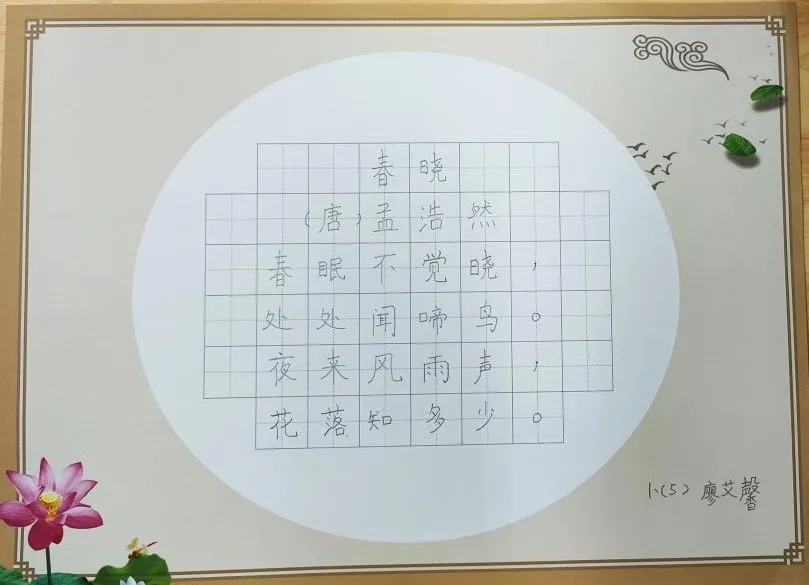 春晓
（唐）孟浩然
春眠不觉晓，
处处闻啼鸟。
夜来风雨声，
花落知多少。
1、(5) 廖艾馨